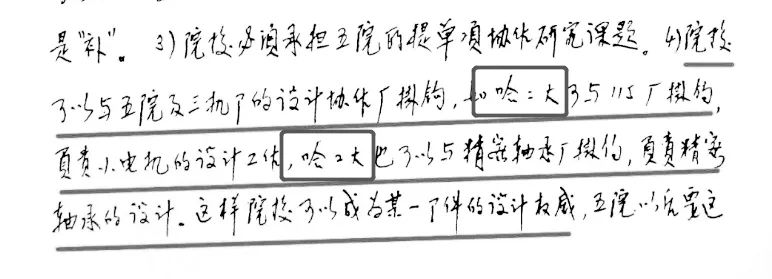 是"补"。3)院校必须承担五院的提单项协作研究课题。4)院校
可以与五院及三机部的设计协作厂挂钩,如哈工大可与115厂挂钩,
負責小电机的设计工作,哈工大也可以与精密轴承厂挂钩,負責精密
轴承的设计。这样院校可以成为某一部件的设计权威,五院以后要这